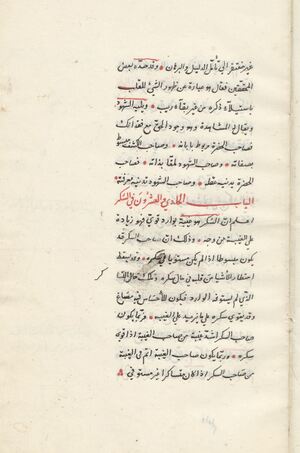 غير مفتقر الى تأمل الدليل والبرهان وقد حده بعض
المحققين فقال هو عبارة عن ظهور الشئ للقلب
باستيلاء ذكره من غير بقاء ريب ويليه الشهود
ويقال فى المشاهدة هو وجود الحق مع فقدانك
وصاحب المحاضرة مربوط باياته وصاحب المكاشفة مبسوط
بصفاته وصاحب الشهود ملقا بذاته فصاحب
المحاضرة يدنيه عقله وصاحب الشهود تدنيه معرفته
الباب الحادى والعشرون فى السكر
اعلم ان السكر هو غيبة بوارد قوى فهو زيادة
على الغيبة من وجه وذلك ان صاحب السكر قد
يكون مبسوطا اذا لم يكن مستوفيا فى سكره وقد يسقط
اخطار الاشياء عن قلبه فى حال سكره وذلك حال المتساكر
الذى لم يستوفه الوارد فيكون للاحساس فيه مساغ
وقد يقوى سكره حتى يزيد على الغيبة فربما يكون
صاحب السكر اشد غيبة من صاحب الغيبة اذا قوى
سكره وربما يكون صاحب الغيبة اتم فى الغيبة
من صاحب السكر اذا كان متساكرا غير مستوفى